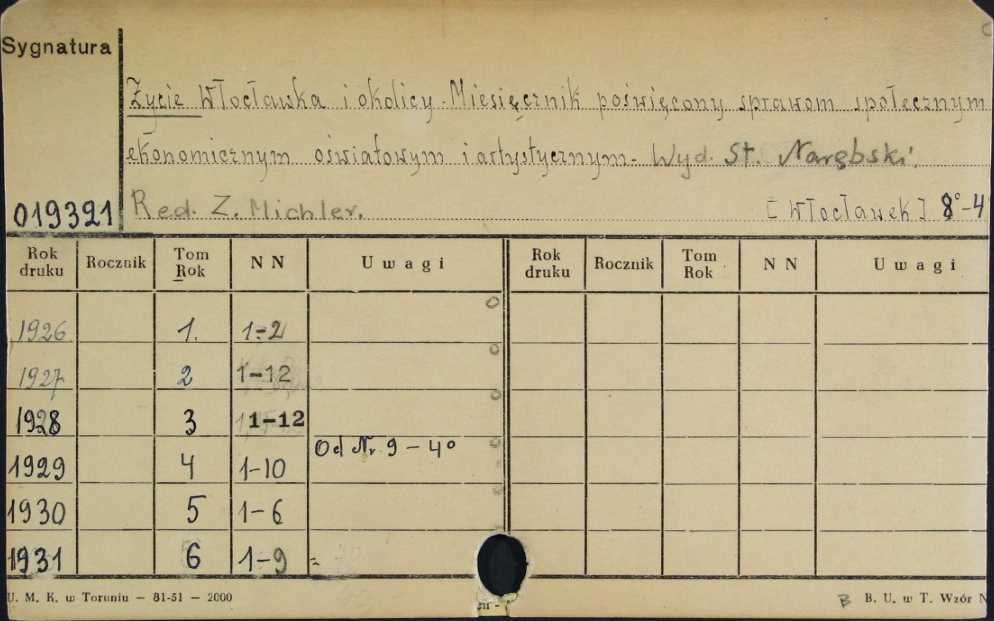 Sygnatura
Życie Włocławka i okolicy. Miesięcznik poświęcony sprawom społecznym
ekonomicznym oświatowym i artystycznym. Wyd. St. Narębski.
019321 Red. Z. Michler. [Włocławek] 8°-4
Rok druku Rocznik Tom Rok NN Uwagi Rok druku Rocznik Tom Rok NN Uwagi
1926 1. 1-2
1927 2 1-12
1928 3 1-12
1929 4 1-10 Od Nr 9 - 4°
1930 5 1-6
1931 6 1-9
U. M. K. w Toruniu — 81-51 — 2000 B B. U. w T. Wzór N